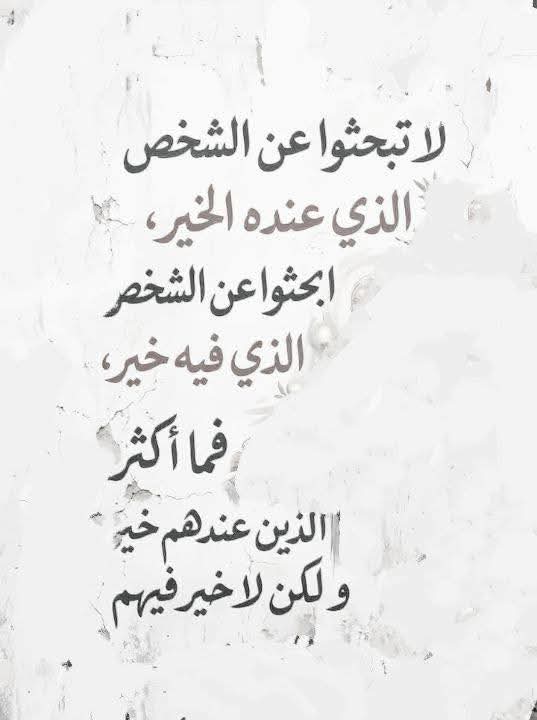 لا تبحثوا عن الشخص
الذي عنده الخير،
ابحثوا عن الشخص
الذي فيه خير،
فما أكثر
الذين عندهم خير
ولكن لا خير فيهم